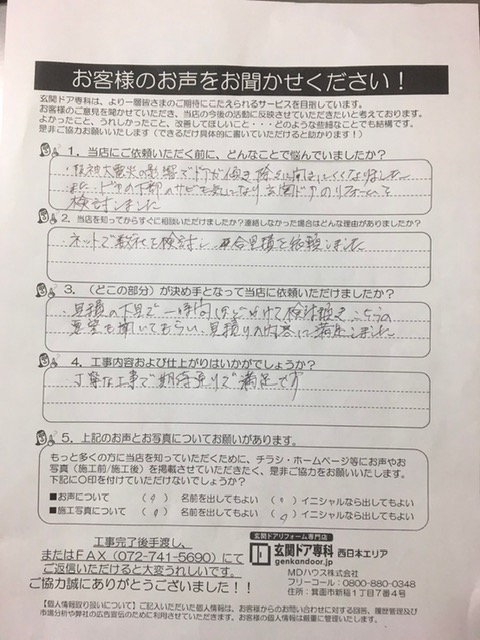 お客様のお声をお聞かせください！
玄関ドア専科は、より一層皆さまのご期待にこたえられるサービスを目指しています。
お客様のご意見を聞かせていただき、当店の今後の活動に反映させていただきたいと考えております。
よかったこと、うれしかったこと、改善してほしいこと・・・どのような些細なことでも結構です。
是非ご協力お願いいたします（できるだけ具体的に書いていただけると助かります！）
1. 当店にご依頼いただく前に、どんなことで悩んでいましたか？
ドアが傾き
また ドアの下部のサビも気になり玄関ドアのリフォームを
検討しました
2. 当店を知ってからすぐに相談いただけましたか？連絡しなかった場合はどんな理由がありましたか？
・ネットで数社を検討し 見積を依頼しました
3. （どこの部分）が決め手となって当店に依頼いただけましたか？
・見積の下見で一時間ほどかけて検討頂き こちらの
要望も聞いてもらい、見積りの内容に満足しました
4. 工事内容および仕上がりはいかがでしょうか？
・丁寧な工事で期待通りで満足です
5. 上記のお声とお写真についてお願いがあります。
もっと多くの方に当店を知っていただくために、チラシ・ホームページ等にお声やお
写真（施工前/施工後）を掲載させていただきたく、是非ご協力をお願いいたします。
下記に○印を付けていただけないでしょうか？
■お声について （ ） 名前を出してもよい （○） イニシャルなら出してもよい
■施工写真について （ ） 名前を出してもよい （ ） イニシャルなら出してもよい
工事完了後手渡し、
またはFAX（072-741-5690）にて
ご返信いただけると大変うれしいです。
ご協力誠にありがとうございました！！
玄関ドアリフォーム専門店
玄関ドア専科 西日本エリア
genkandoor.jp
MDハウス株式会社
フリーコール：0800-880-0348
住所：箕面市新稲1丁目7番4号
【個人情報取り扱いについて】ご記入いただいた個人情報は、お客様からのお問い合わせに対する回答、履歴管理及び
市場分析や弊社の広告宣伝のために利用させていただきます。お客様の個人情報は厳重に管理いたします。